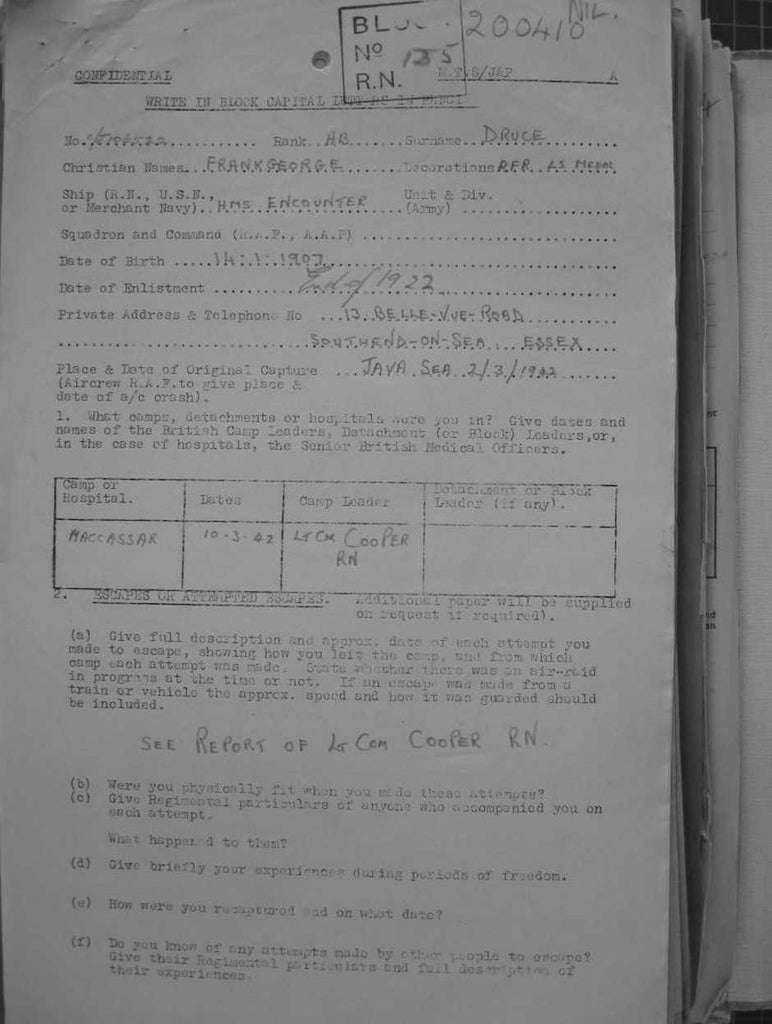 NIL.
200410
BLOCK
Nº 135
R.N.
CONFIDENTIAL M.I.9/JAP A
WRITE IN BLOCK CAPITAL LETTERS IN PENCIL
No. Rank. AB Surname. DRUCE
Christian Names. FRANK GEORGE Decorations R.F.R. LS MEDAL
Ship (R.N., U.S.N., Unit & Div.
or Merchant Navy). HMS ENCOUNTER (Army)
Squadron and Command (R.A.F., A.A.F)
Date of Birth 14.1.1907
Date of Enlistment End of 1922
Private Address & Telephone No 13. BELLE-VUE-ROAD
SOUTHEND-ON-SEA. ESSEX
Place & Date of Original Capture JAVA SEA 2/3/1942
(Aircrew R.A.F.to give place &
date of a/c crash).
1. What camps, detachments or hospitals were you in? Give dates and
names of the British Camp Leaders, Detachment (or Block) Leaders,or,
in the case of hospitals, the Senior British Medical Officers.
Camp or Hospital. Dates Camp Leader Detachment or Block Leader (if any).
MACCASSAR 10.3.42 LT COM COOPER
RN
2. ESCAPES OR ATTEMPTED ESCAPES. Additional paper will be supplied
on request if required).
(a) Give full description and approx. date of each attempt you
made to escape, showing how you left the camp, and from which
camp each attempt was made. State whether there was an air-raid
in progress at the time or not. If an escape was made from a
train or vehicle the approx. speed and how it was guarded should
be included.
SEE REPORT OF LT COM COOPER RN.
(b) Were you physically fit when you made these attempts?
(c) Give Regimental particulars of anyone who accompanied you on
each attempt.
What happened to them?
(d) Give briefly your experiences during periods of freedom.
(e) How were you recaptured and on what date?
(f) Do you know of any attempts made by other people to escape?
Give their Regimental particulars and full description of
their experiences.